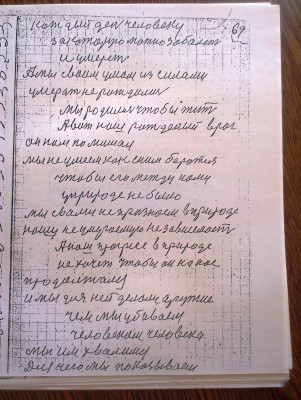 69
каждый ден человеку
заботално можно заболет
и умерет
А мы своим умом из силами
умерат не рождалис
мы родилис чтобы жит
А вот наш рожденый враг
он нам помишал
мы не умеем как с ним боротся
чтобы его между нами
у природе не было
мы с вами не признаем в природе
нашу не умераемую независемост
А наш прогрес в природе
не хочет чтобы он на нас
продолжалас
и мы для ней делаем другие
чем мы убиваем
человеком человека
мы им хвалимся
для чего мы показываем